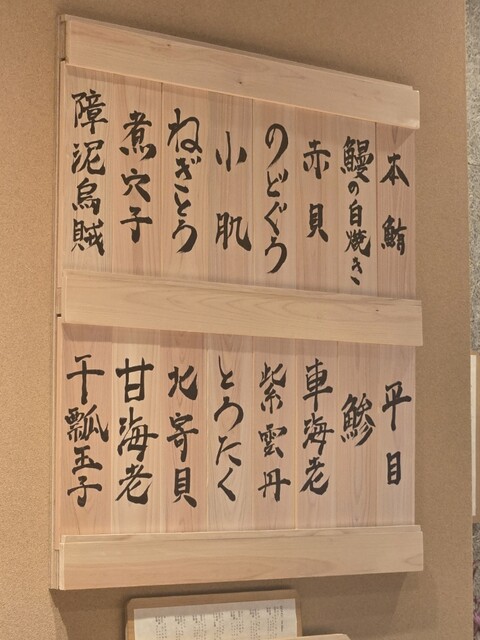 本鮪
鰻の白焼き
赤貝
のどぐろ
小肌
ねぎとろ
煮穴子
障泥烏賊
平目
鯵
車海老
紫雲丹
とろたく
北寄貝
甘海老
干瓢玉子